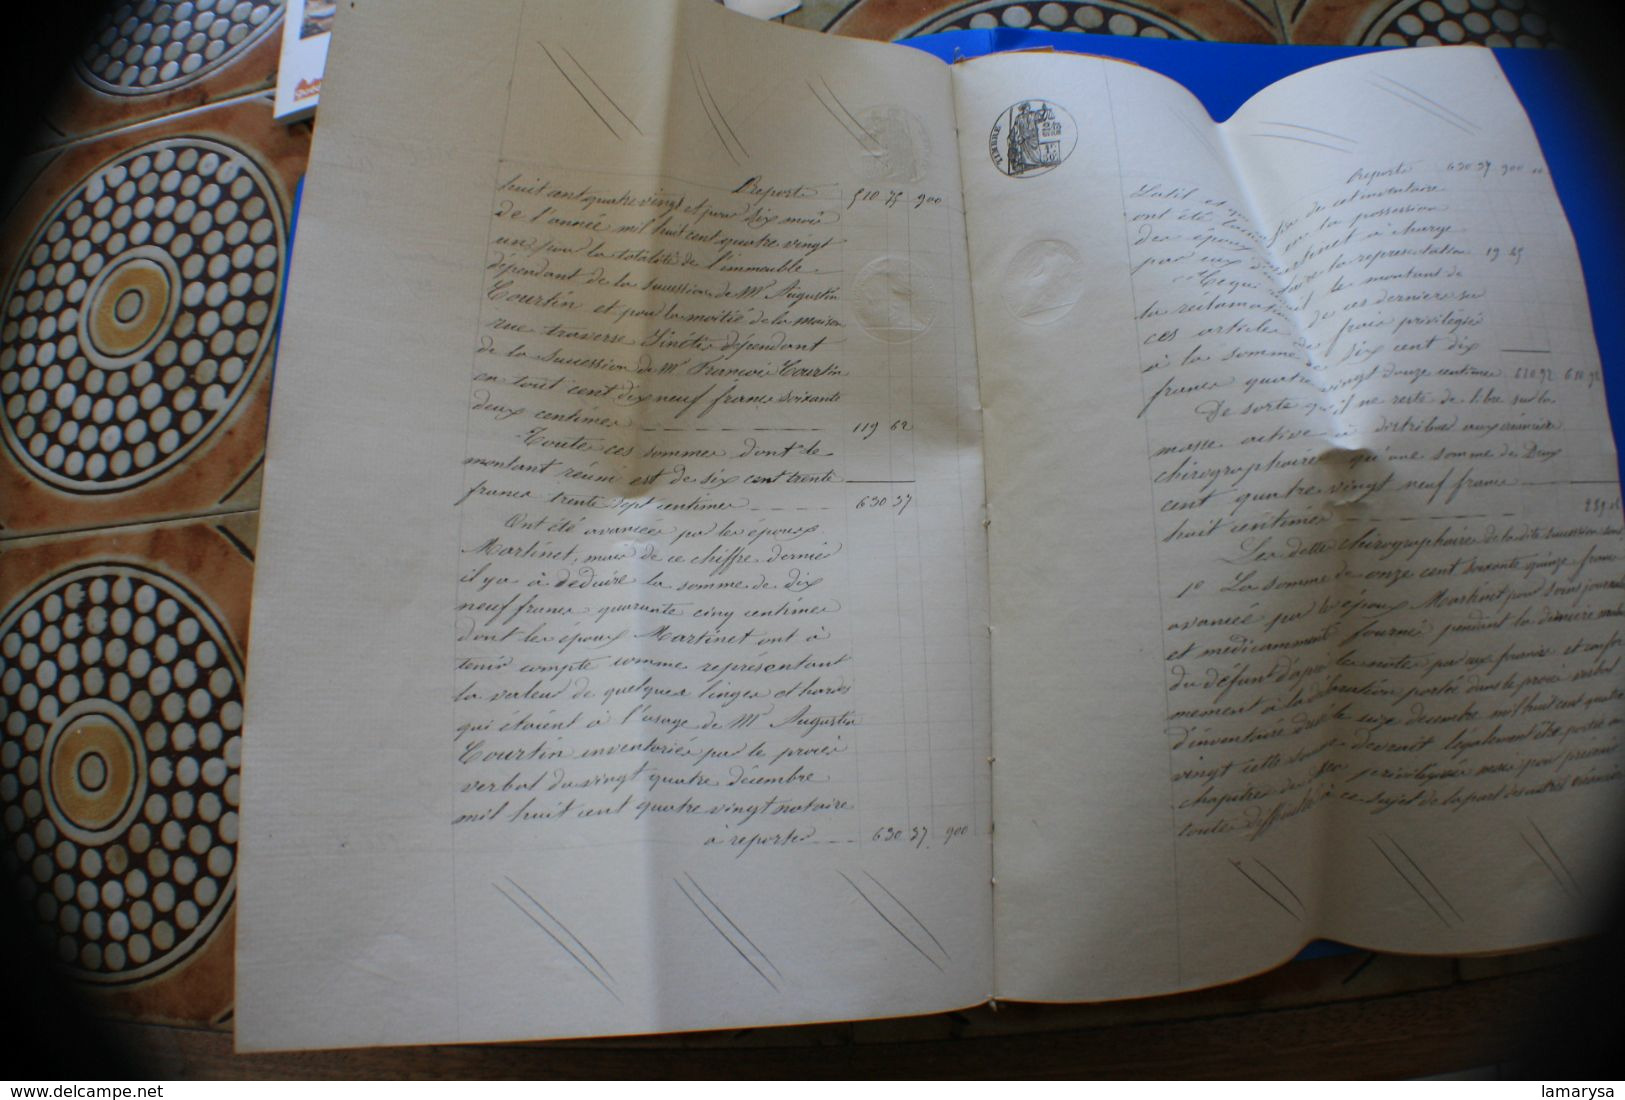 Report 510 75 900
huit cent quatre vingt et pour six mois
de l'année mil huit cent quatre vingt
un pour la totalité de l'immeuble
dépendant de la succession de Mr Augustin
Courtin et pour la moitié de la maison
rue traverse dépendant
de la succession de Mr François Courtin
en tout cent dix neuf francs soixante
deux centimes 119 62
Toutes ces sommes dont le
montant réuni est de six cent trente
francs trente sept centimes 630 37
Ont été avancées par les époux
Martinet, mais de ce chiffre dernier
il y a à déduire la somme de dix
neuf francs quarante cinq centimes
dont les époux Martinet ont à
tenir compte comme représentant
la valeur de quelques linges et hardes
qui étaient à l'usage de Mr Augustin
Courtin inventoriés par le procès
verbal du vingt quatre décembre
mil huit cent quatre vingt notaire
à reporter 630 37 900
TIMBRE
Report 630 37 900
de cet inventaire
ont été en la possession
des époux à charge
par eux la représentation 19 45
Ce qui le montant de
la réclamation de ces derniers sur
ces articles de frais privilégiés
à la somme de six cent dix
francs quatre vingt douze centimes 610 92 610 92
De sorte qu'il ne reste de libre sur la
masse active à distribuer aux créanciers
chirographaires qu'une somme de Deux
cent quatre vingt neuf francs
huit centimes 289 08
Les dettes chirographaires de la dite succession sont
1o La somme de onze cent soixante quinze francs
avancée par les époux Martinet pour soins journaliers
et médicaments fournis pendant la dernière maladie
du défunt d'après les notes par eux fournies et conformément
à la déclaration portée dans le procès verbal
d'inventaire du seize décembre mil huit cent quatre
vingt cette somme devrait légalement être portée au
chapitre des privilégiées mais pour prévenir
toutes difficultés à ce sujet de la part des autres créanciers
lamarysa
www.delcampe.net